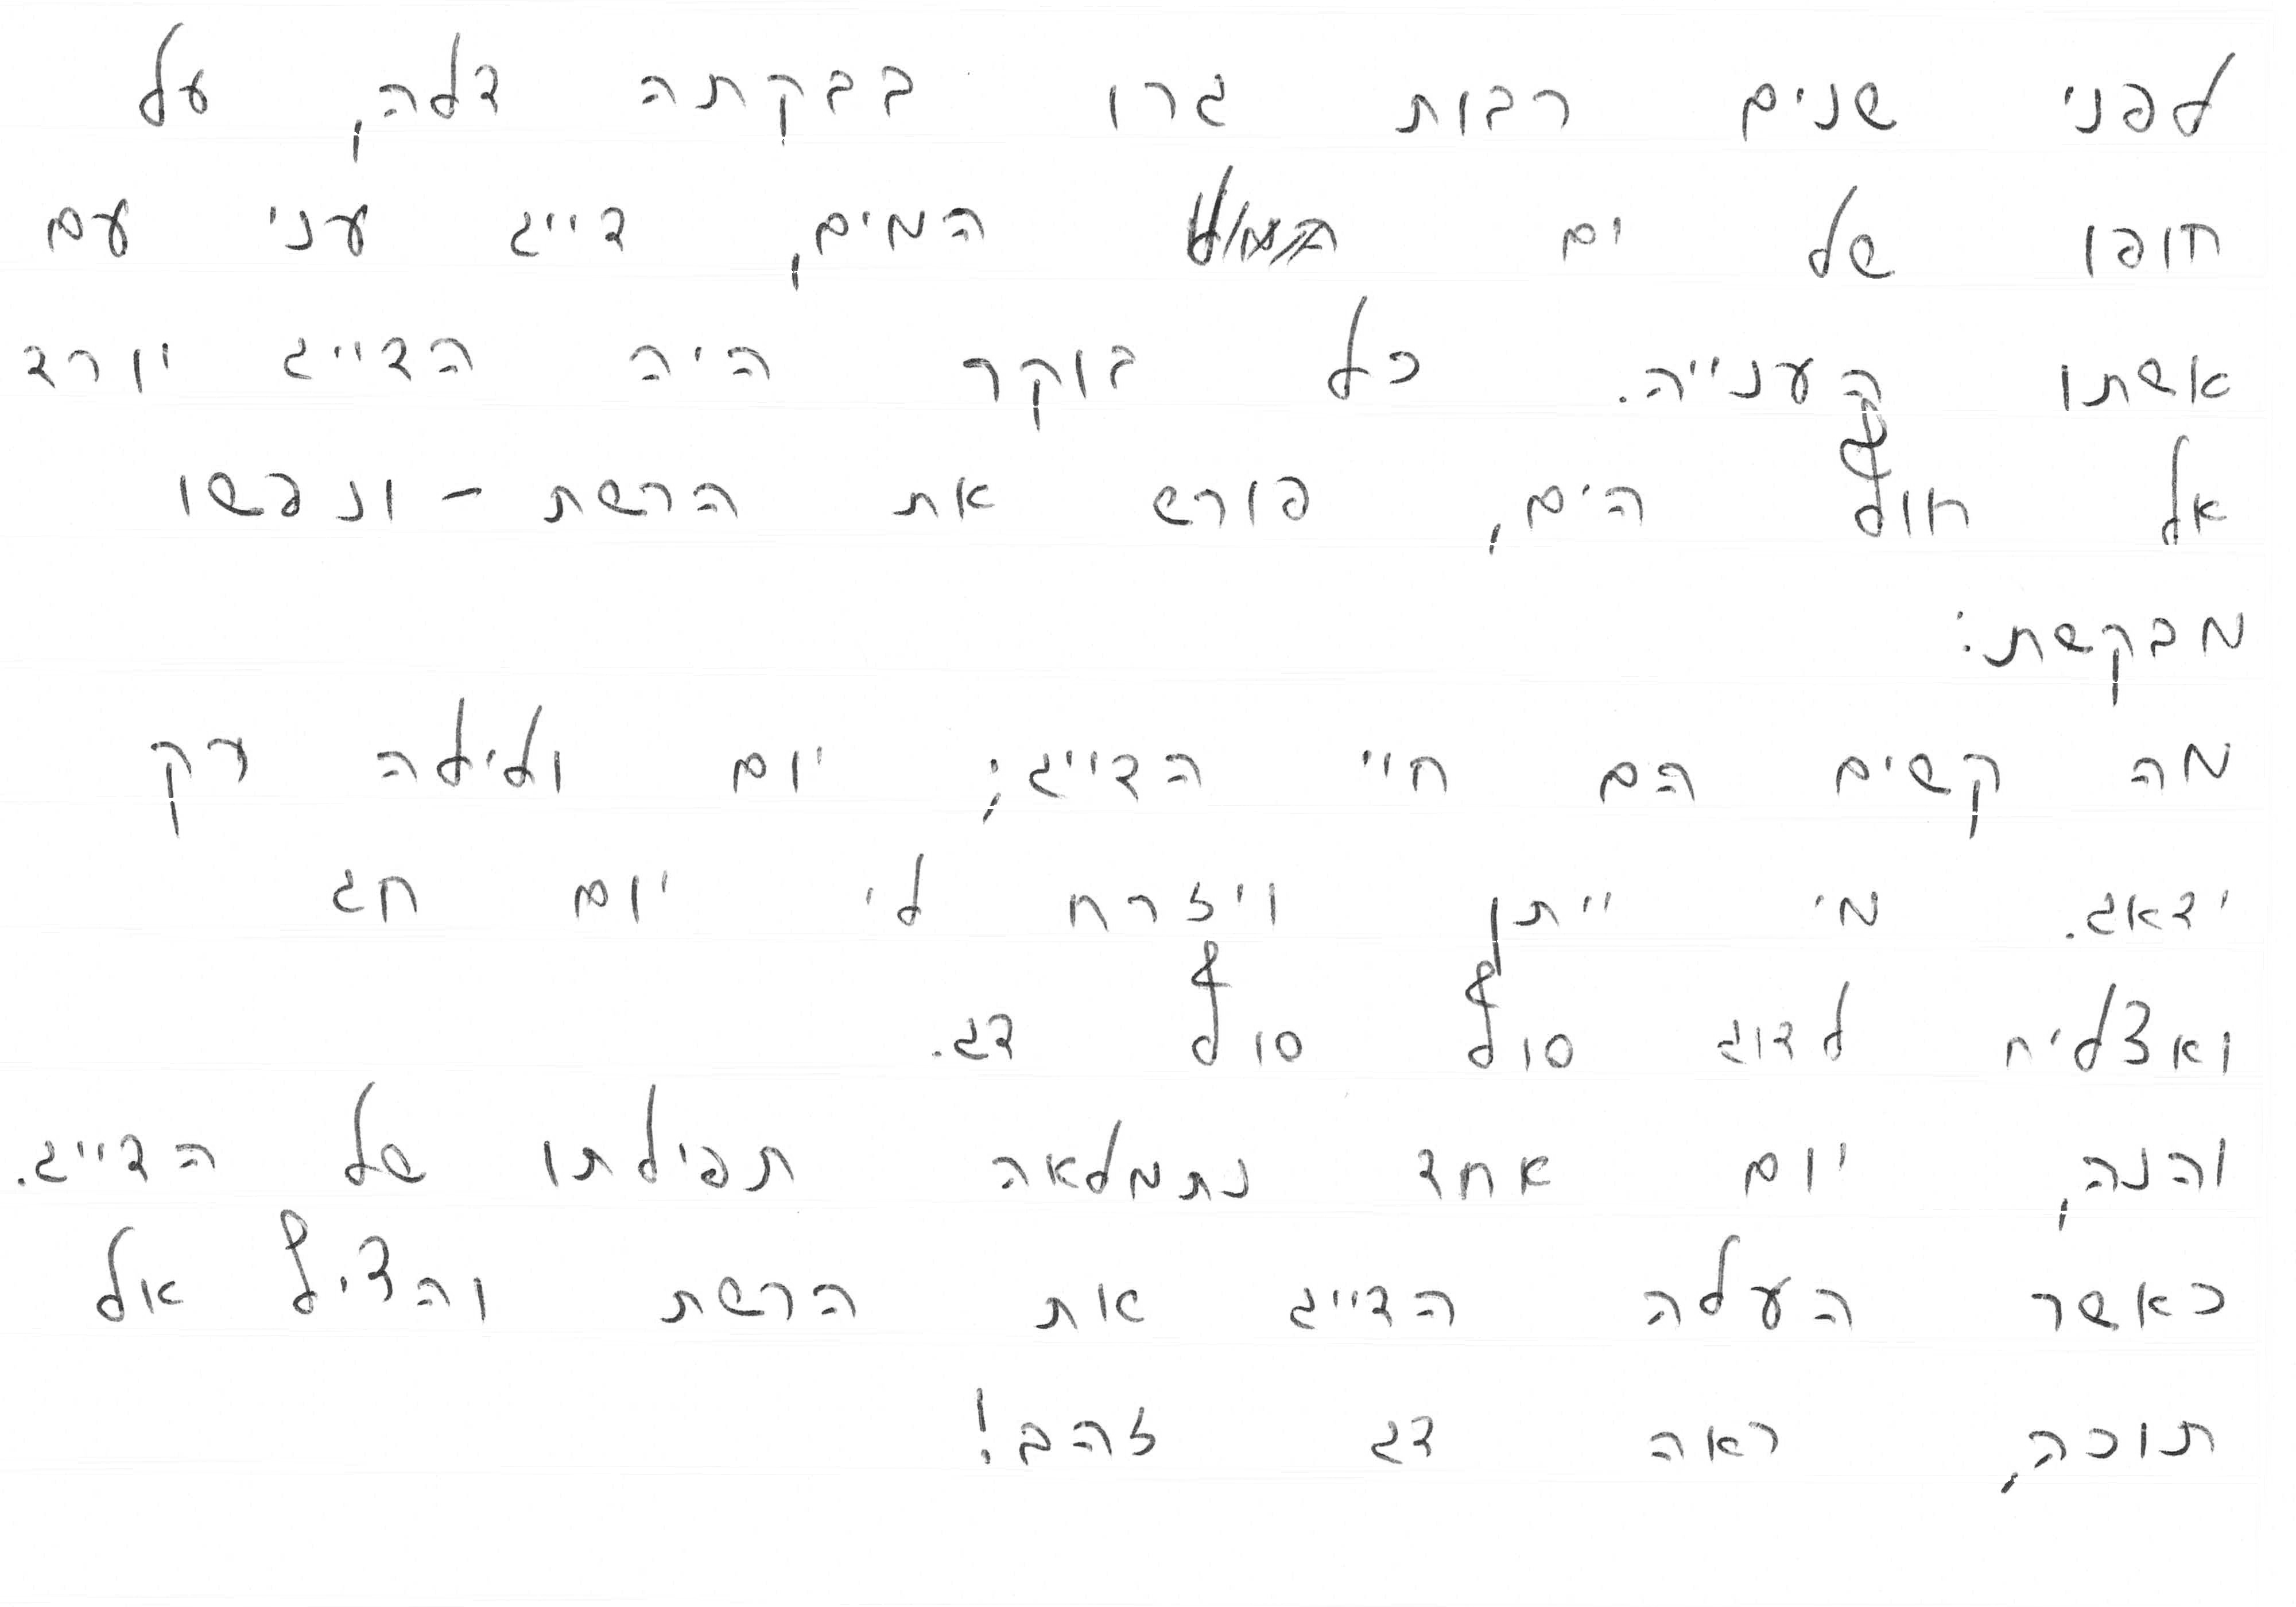 לפני שנים רבות גרו בבקתה דלה, על
חופו של ים המים, דייג עני עם
אשתו הענייה. כל בוקר היה הדייג יורד
אל חוף הים, פורש את הרשת - ונפשו
מבקשת:
מה קשים הם חיי הדייג; יום ולילה רק
ידאג. מי ייתן ויזרח לי יום חג
ואצליח לדוג סוף סוף דג.
והנה, יום אחד נתמלאה תפילתו של הדייג.
כאשר העלה הדייג את הרשת והציף אל
תוכה, ראה דג זהב!